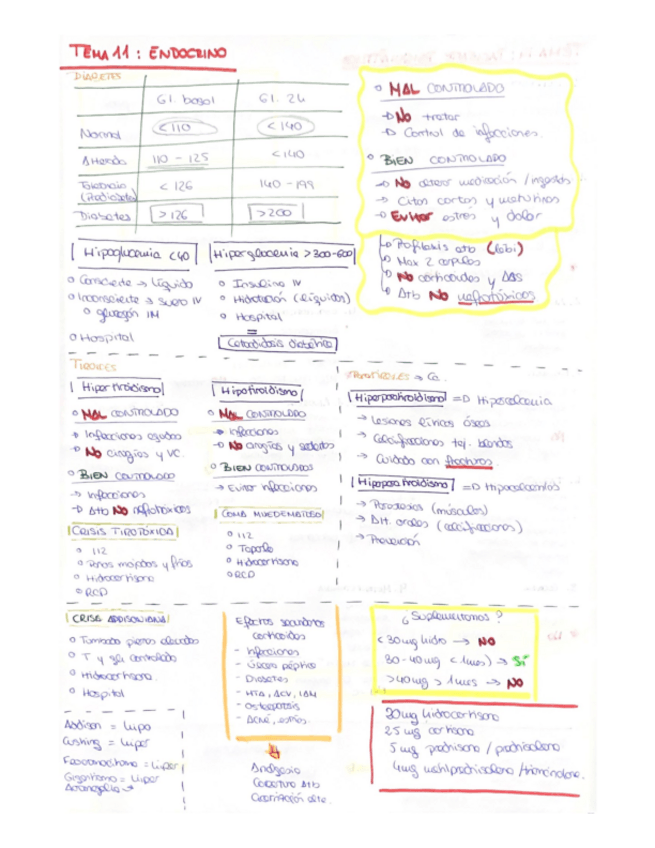 TEMA 11: ENDOCRINO
DIABETES
Gl. basal Gl. 2h
Normal <110 <140
Alterado 110 - 125 <140
Tolerancia (Prediabetes) <126 140 - 199
Diabetes >126 >200
MAL CONTROLADO
No tratar
Control de infecciones.
BIEN CONTROLADO
No alterar medicación / ingestas
Citas cortas y matutinas
Evitar estres y dolor
Profilaxis atb
Max 2 carpules
No corticoides y AAS
Atb No nefrotóxicos
Hipoglucemia <40
Consciente → líquido
Inconsciente → suero IV
glucagón IM
Hospital
Hiperglucemia >300-600
Insulina IV
Hidratación (líquidos)
Hospital
=
Cetoacidosis diabética
TIROIDES
Hipertiroidismo
MAL CONTROLADO
→ Infecciones agudas
No cirugías y VC.
BIEN CONTROLADO
→ Infecciones
Atb No nefrotóxicos
CRISIS TIROTÓXICA
112
Paños mojados y fríos
Hidrocortisona
RCP
Hipotiroidismo
MAL CONTROLADO
→ Infecciones
No cirugías y sedantes
BIEN CONTROLADOS
→ Evitar infecciones
COMA MIXEDEMATOSO
112
Taparlo
Hidrocortisona
RCP
PARATIROIDES → Ca.
Hiperparatiroidismo => Hipercalcemia
→ Lesiones líticas óseas
→ Calcificaciones tej. blandos
→ Cuidado con fracturas
Hipoparatiroidismo => Hipocalcemias
→ Parestesias (músculos)
→ Alt. orales (calcificaciones)
→ Prevención
CRISIS ADDISONIANA
Tumbado piernas elevadas
T y glu controlado
Hidrocortisona.
Hospital
Addison = hipo
Cushing = hiper
Feocromocitoma = hiper
Gigantismo = hiper
Acromegalia
Efectos secundarios corticoides
- Infecciones
- Úlcera péptica
- Diabetes
- HTA, ACV, IAM
- Osteoporosis
- Acné, estrías.
Analgesia
Cobertura Atb
Cicatrización alte.
¿Suplementamos?
<30mg hidro → NO
30-40mg (<1mes) → Sí
>40mg > 1mes → NO
20mg hidrocortisona
25mg cortisona
5mg prednisona / prednisolona
4mg metilprednisolona / triamcinolona.